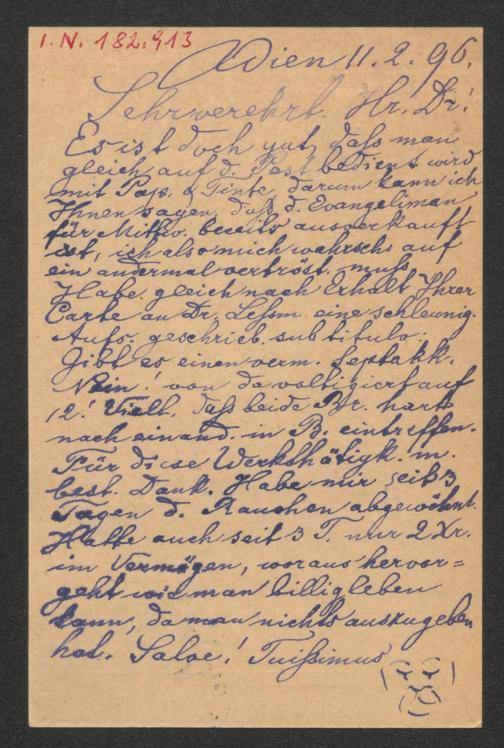 I. N. 182.913
Wien 11.2.96.
Sehrverehrt. Hr. Dr.!
Es ist doch gut, daß man
gleich auf d. Post bedient wird
mit Pap. & Tinte, darum kann ich
Ihnen sagen, daß d. Evangeliman
für Mittw. bereits ausverkauft
ist, ich also mich wahrsch. auf
ein andermal vertröst. muß.
Habe gleich nach Erhalt Ihrer
Carte an Dr. eine schleunig.
Aufs. geschrieb. sub titulo.
Gibt es einen verm. Septakk.
Nein! von da voltigiert auf
12! Viell. daß beide Br. hart
nach einand. in B. eintreffen.
Für diese Werkthätigk. m.
best. Dank. Habe mir seit 3
Tagen d. Rauchen abgewöhnt.
Hatte auch seit 3 T. nur 2 Kr.
im Vermögen, woraus hervor=
geht wie man billig leben
kann, da man nichts auszugeben
hat. Salve! Tuissimus